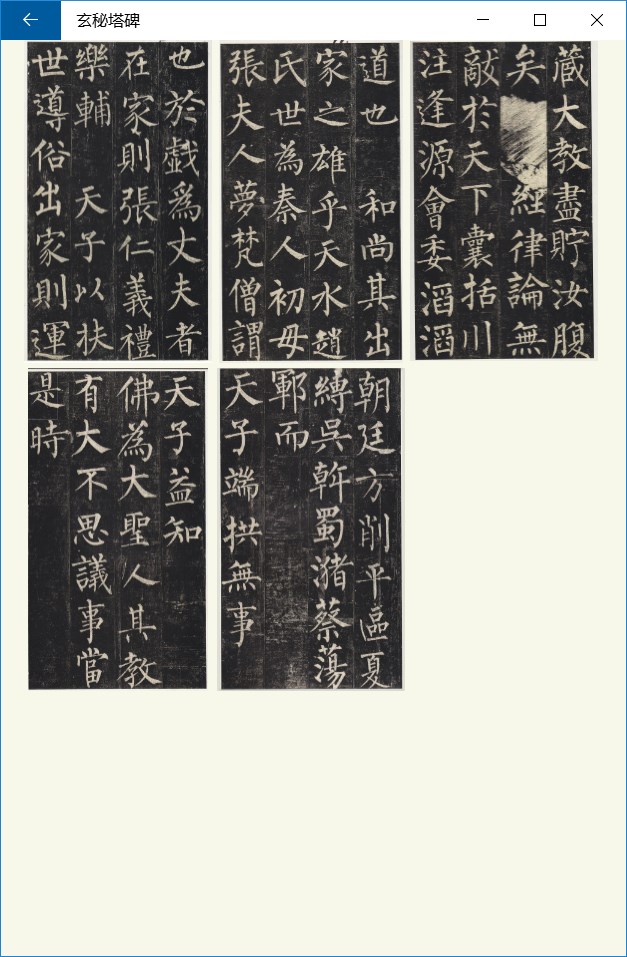 玄秘塔碑
也於戱為丈夫者
在家則張仁義禮
樂輔 天子以扶
世導俗出家則運
道也 和尚其出
家之雄乎天水趙
氏世為秦人初母
張夫人夢梵僧謂
藏大教盡貯汝腹
矣 經律論無
敵於天下囊括川
注逢源會委滔滔
天子益知
佛為大聖人其教
有大不思議事當
是時
朝廷方削平區夏
縛吳斡蜀瀦蔡蕩
鄆而
天子端拱無事